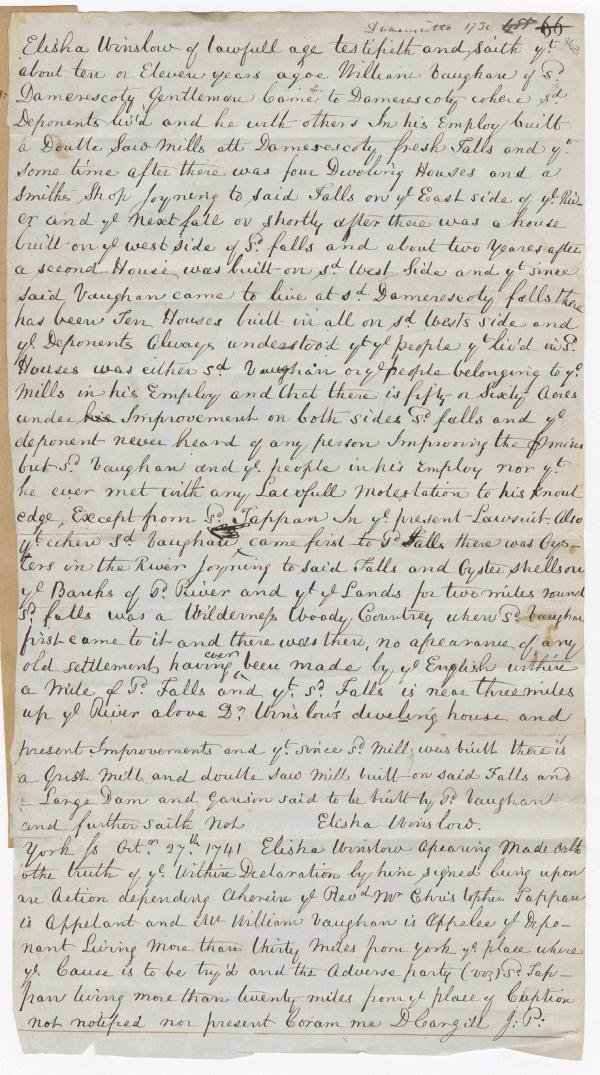 Damariscotta 1730 66
Elisha Winslow of lawfull age testifieth and saith yt
about ten or Eleven years agoe William Vaughan of Sd
Damerescoty Gentleman Came to Damerescoty where sd
Deponents liv'd and he with others In his Employ built
a Double Saw Mills att Damerescoty fresh Falls and yt
some time after there was four Dweling Houses and a
Smiths Shop Joyning to said Falls on ye East side of ye Riv
er and ye Next fall or shortly after there was a house
built on ye west side of Sd falls and about two Yeares after
a second House was built on sd West Side and yt since
said Vaughan came to live at sd Damerescoty falls there
has been Ten Houses built in all on sd Wests side and
ye Deponents Always understood yt ye people yt liv'd in Sd
Houses was either sd Vaughan or ye people belonging to ye
Mills in his Employ and that there is fifty or Sixty Acres
under his Improvement on both sides Sd falls and ye
deponent never heard of any person Improving the Pmises
but Sd Vaughan and ye people in his Employ nor yt
he ever met with any Lawfull Molestation to his knowl
edge, Except from Sd Tappan In ye present Lawsuit. Also
yt when Sd Vaughan came first to Sd Falls there was Oys-
ters in the River Joyning to said Falls and Oyster shells on
ye Banks of Sd River and yt ye Lands for two miles round
Sd falls was a Wilderness Woody Countrey when Sd Vaughan
first came to it and there was there, no apearance of any
old settlement having ever been made by ye English within
a Mile of Sd Falls and yt Sd Falls is near three miles
up ye River above Dd Winslow's dweling house and
present Improvements and yt since Sd Mill was built there is
a Grist Mill and double saw Mill built on said Falls and
Large Dam and Garison said to be built by Sd Vaughan
and further saith Not Elisha Winslow.
York ss Octr 27th 1741 Elisha Winslow Apearing Made Oath
to the truth of ye Within Declaration by him signed being upon
an Action depending Wherein ye Revd Mr Christopher Tappan
is Appelant and Mr William Vaughan is Appelee ye Depo-
nant Living More than thirty Miles from York ye place where
ye Cause is to be try'd and the Adverse party (viz) Sd Tap-
pan living more than twenty miles from ye place of Caption
not notified nor present Coram me D Cargill J: P: